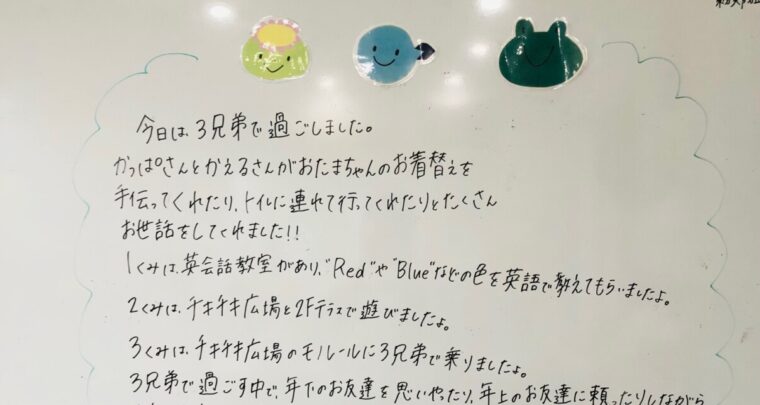 今日は、3兄弟で過ごしました。
かっぱさんとかえるさんがおたまちゃんのお着替えを
手伝ってくれたり、トイレに連れて行ってくれたりとたくさん
お世話をしてくれました!!
1くみは、英会話教室があり、"Red"や"Blue"などの色を英語で教えてもらいましたよ。
2くみは、チキチキ広場と2Fテラスで遊びましたよ。
3くみは、チキチキ広場のモノレールに3兄弟で乗りましたよ。
3兄弟で過ごす中で、年下のお友達を思いやったり、年上のお友達に頼ったりしながら